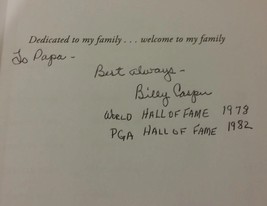 Dedicated to my family . . . welcome to my family
To Papa -
Best always -
Billy Casper
WORLD HALL OF FAME 1978
PGA HALL OF FAME 1982